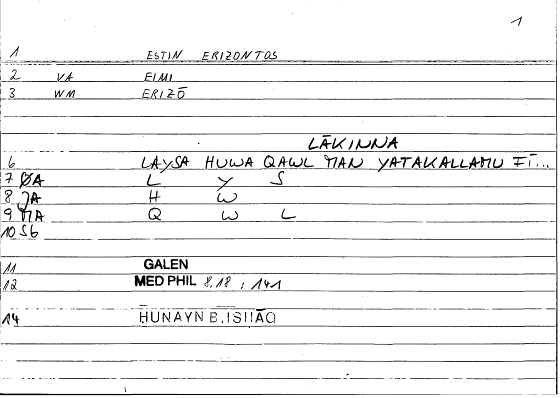 1
1 ESTIN ERIZONTOS
2 VA EIMI
3 WM ERIZŌ
LĀKINNA
6 LAYSA HUWA QAWL MAN YATAKALLAMU FĪ...
7 ØA L Y S
8 JA H W
9 MA Q W L
10 SG
11 GALEN
12 MED PHIL 8,18 ; 141
14 HUNAYN B. ISḤĀQ